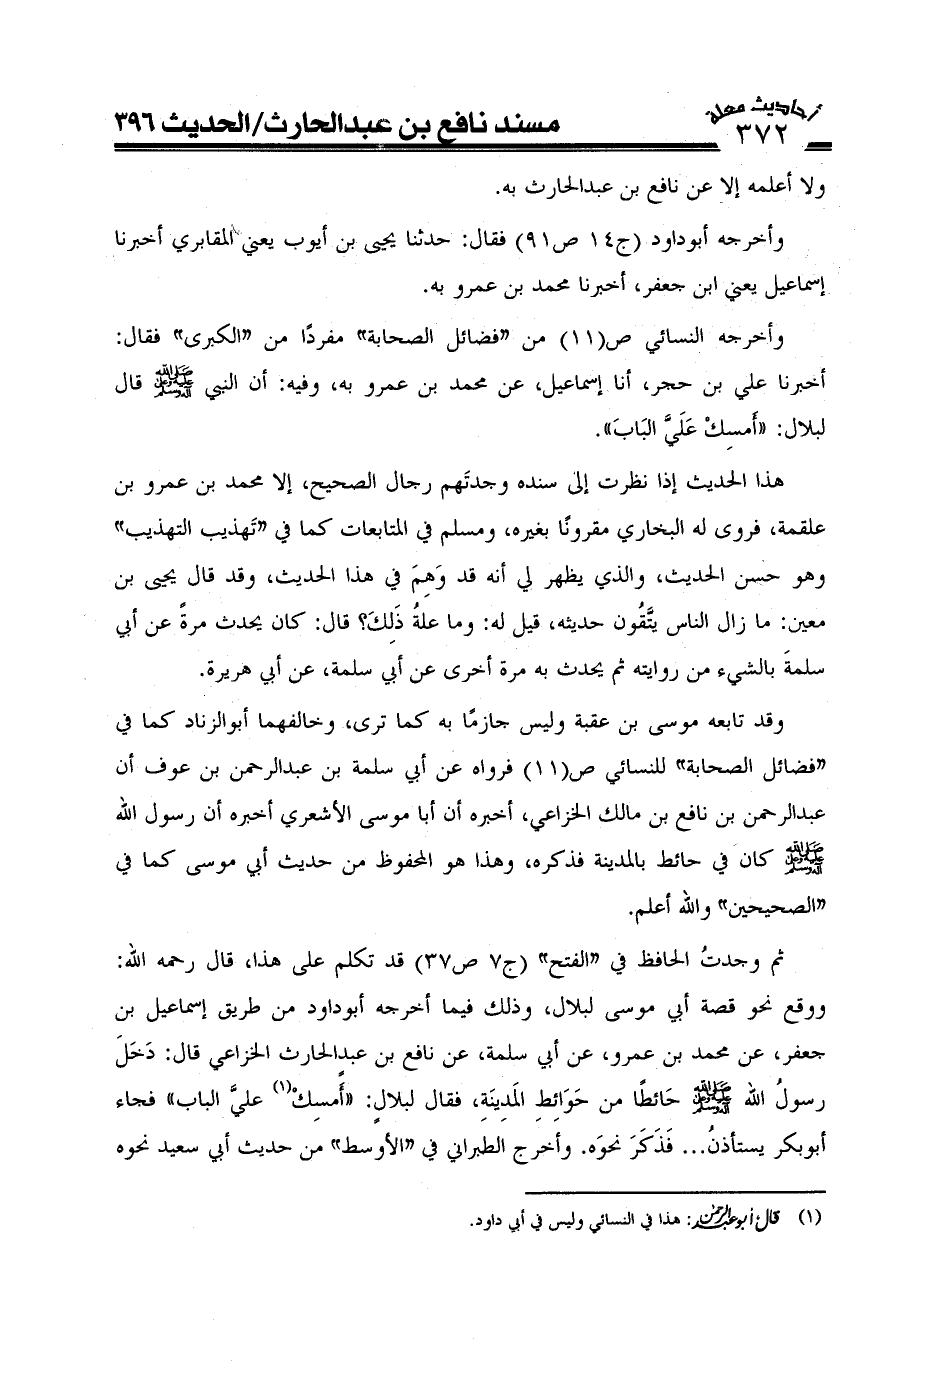 أحاديث معلة
٣٧٢
مسند نافع بن عبدالحارث/الحديث ٣٩٦
ولا أعلمه إلا عن نافع بن عبدالحارث به.
وأخرجه أبوداود (ج١٤ ص٩١) فقال: حدثنا يحيى بن أيوب يعني المقابري أخبرنا
إسماعيل يعني ابن جعفر، أخبرنا محمد بن عمرو به.
وأخرجه النسائي ص(١١) من «فضائل الصحابة» مفردًا من «الكبرى» فقال:
أخبرنا علي بن حجر، أنا إسماعيل، عن محمد بن عمرو به، وفيه: أن النبي ﷺ قال
لبلال: «أَمسِكْ عَلَيَّ البَابَ».
هذا الحديث إذا نظرت إلى سنده وجدتَهم رجال الصحيح، إلا محمد بن عمرو بن
علقمة، فروى له البخاري مقرونًا بغيره، ومسلم في المتابعات كما في «تَهذيب التهذيب»
وهو حسن الحديث، والذي يظهر لي أنه قد وَهِمَ في هذا الحديث، وقد قال يحيى بن
معين: ما زال الناس يتَّقُون حديثه، قيل له: وما علةُ ذَلِكَ؟ قال: كان يحدث مرةً عن أبي
سلمةَ بالشيء من روايته ثم يحدث به مرة أخرى عن أبي سلمة، عن أبي هريرة.
وقد تابعه موسى بن عقبة وليس جازمًا به كما ترى، وخالفهما أبوالزناد كما في
«فضائل الصحابة» للنسائي ص(١١) فرواه عن أبي سلمة بن عبدالرحمن بن عوف أن
عبدالرحمن بن نافع بن مالك الخزاعي، أخبره أن أبا موسى الأشعري أخبره أن رسول الله
ﷺ كان في حائط بالمدينة فذكره، وهذا هو المحفوظ من حديث أبي موسى كما في
«الصحيحين» والله أعلم.
ثم وجدتُ الحافظ في «الفتح» (ج٧ ص٣٧) قد تكلم على هذا، قال رحمه الله:
ووقع نحو قصة أبي موسى لبلال، وذلك فيما أخرجه أبوداود من طريق إسماعيل بن
جعفر، عن محمد بن عمرو، عن أبي سلمة، عن نافع بن عبدالحارث الخزاعي قال: دَخَلَ
رسولُ الله ﷺ حَائطًا من حَوَائِطِ المَدِينَةِ، فقال لبلالٍ: «أَمسِكْ(١) عليَّ الباب» فجاء
أبوبكر يستأذنُ... فَذَكَرَ نحوَه. وأخرج الطبراني في «الأوسط» من حديث أبي سعيد نحوه
(١) قال أبو عبدالرحمن: هذا في النسائي وليس في أبي داود.